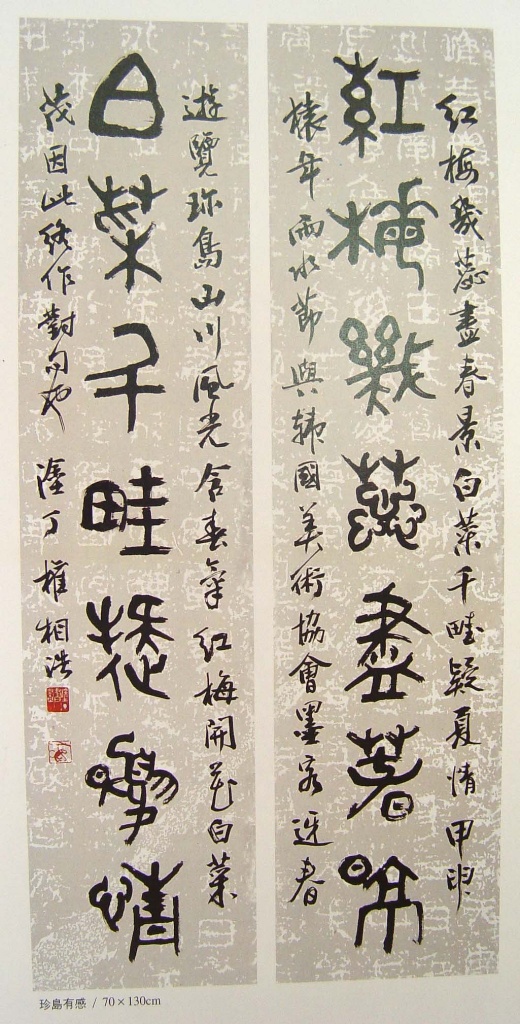 紅梅幾蕊盡春景白菜千畦疑夏情甲申
紅梅幾蕊盡春景
猿年雨水節與韓國美術協會墨客迓春
遊覽珎島山川風光含春氣紅梅開花白菜
白菜千畦疑夏情
茂因此作對句也 塗丁 權相浩
珍島有感 / 70×130cm